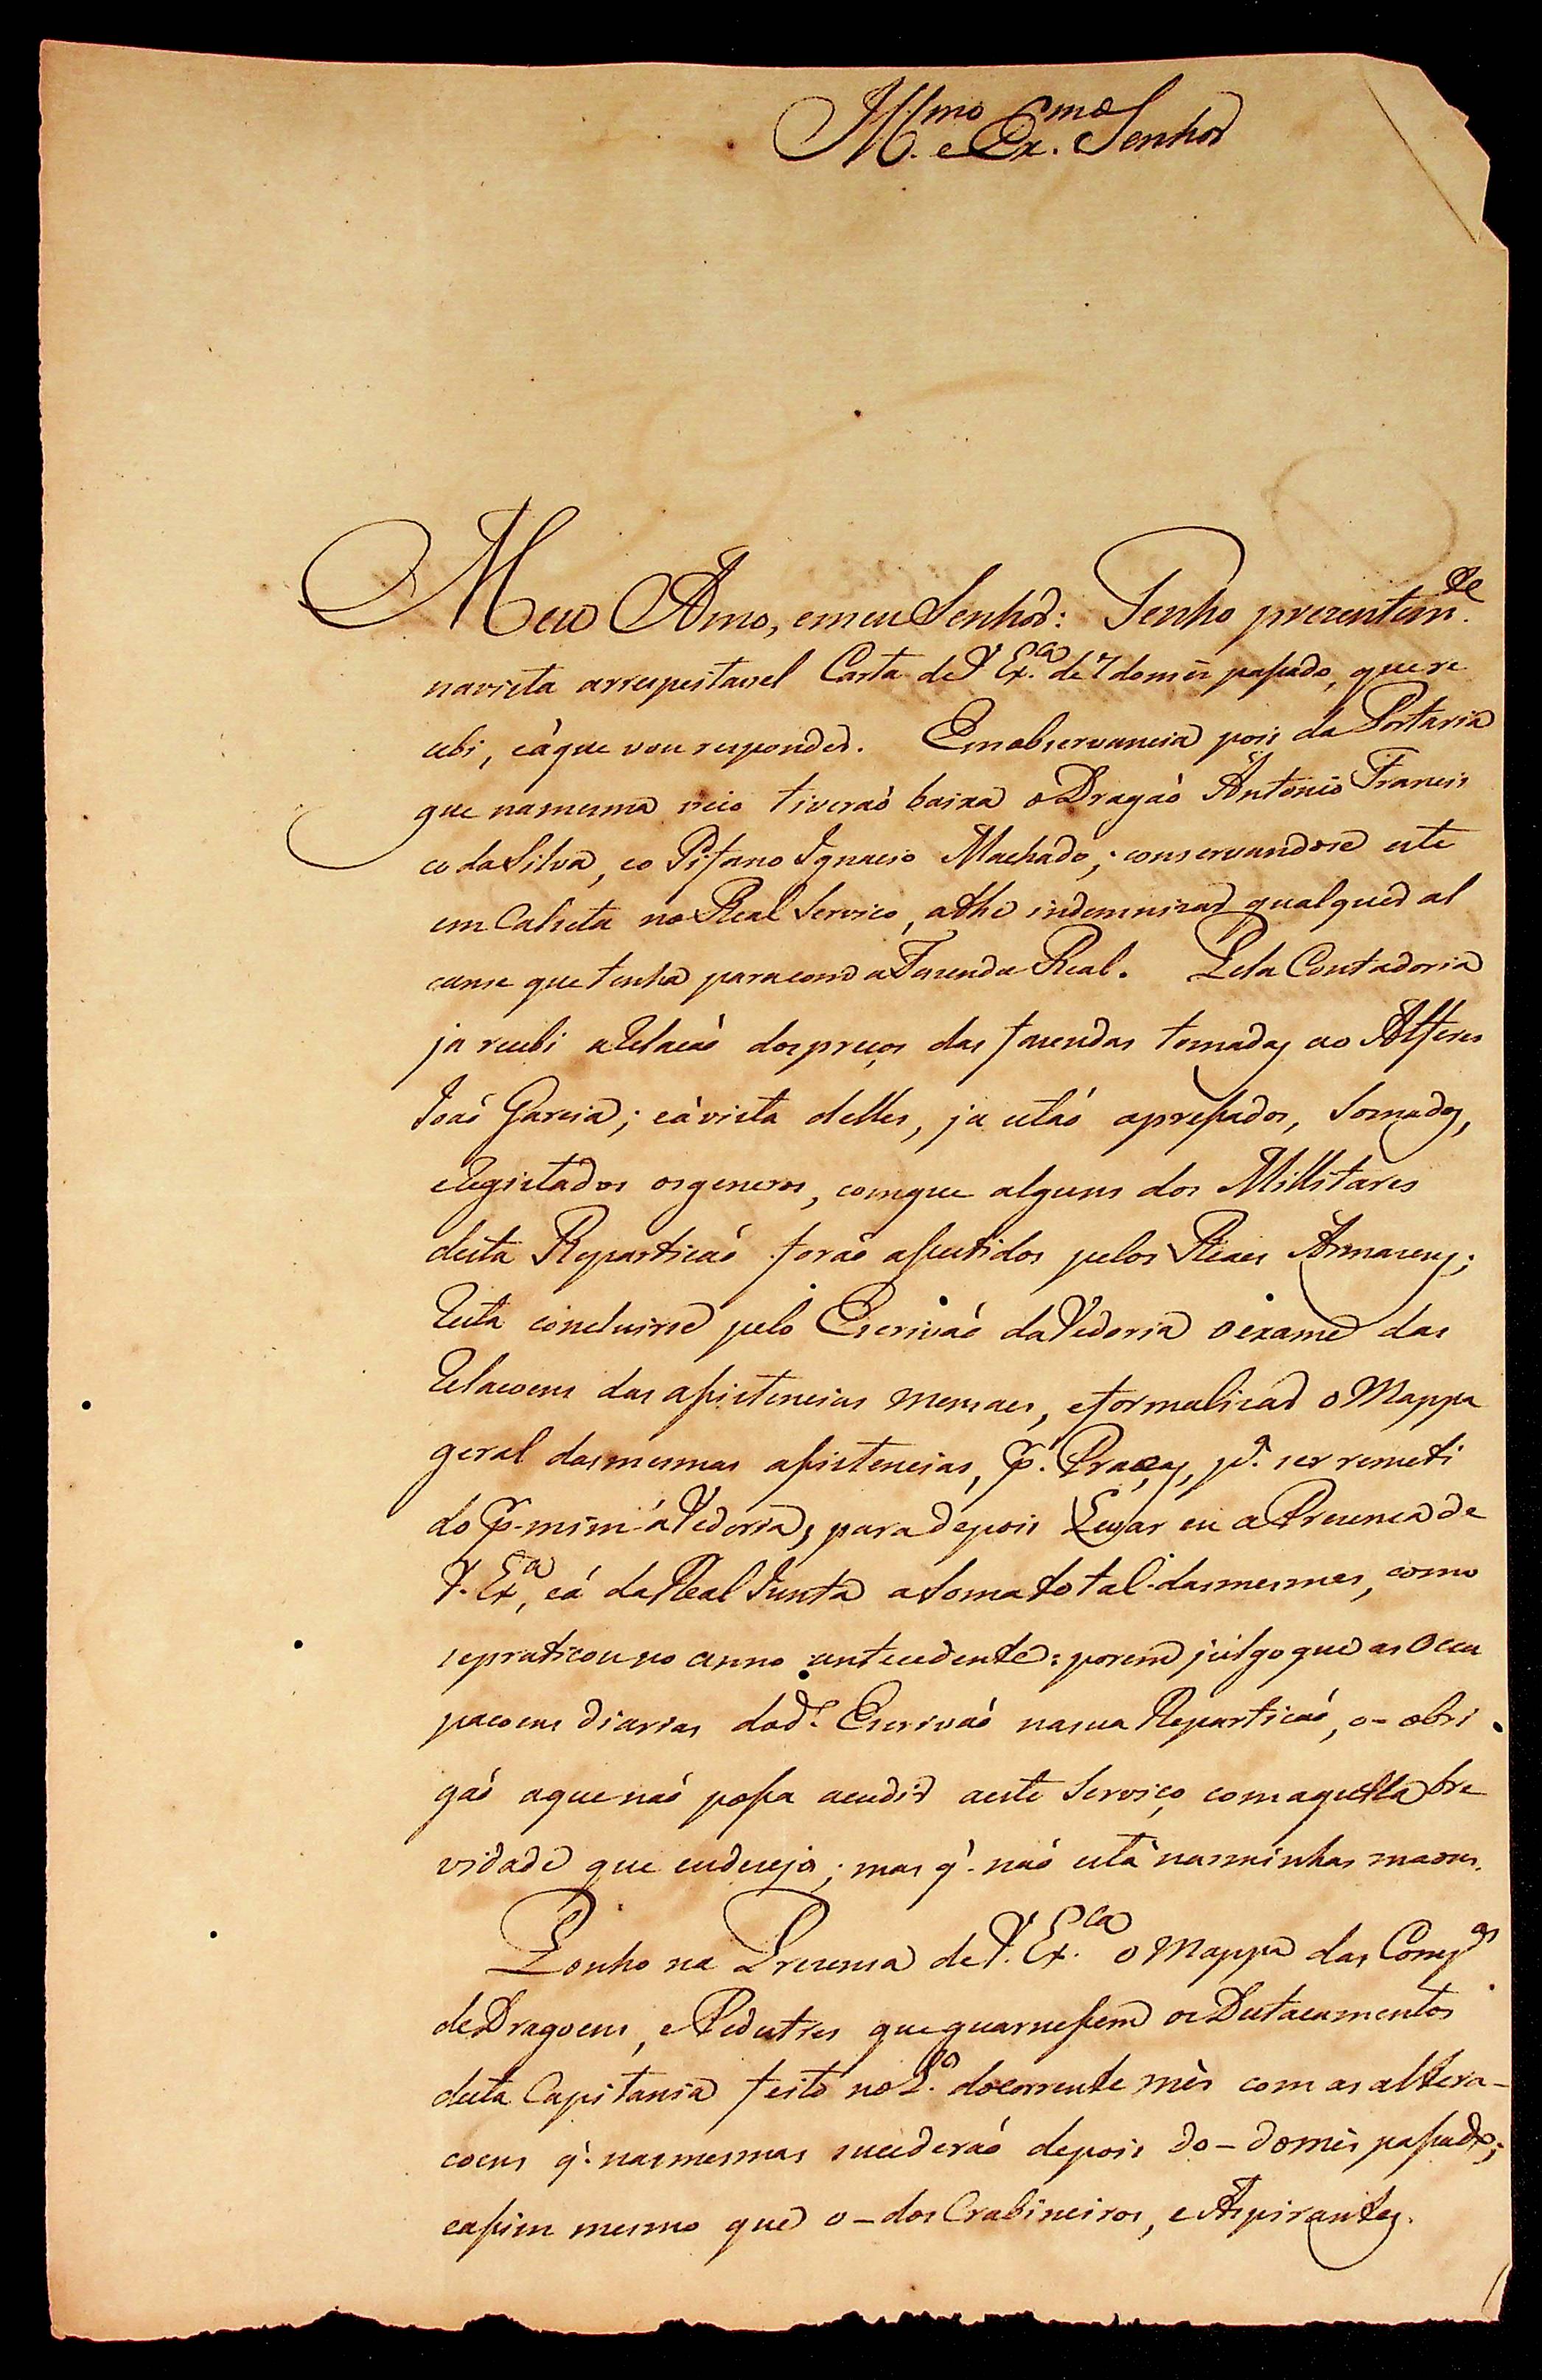 Ill.mo e Ex.mo Senhor
Meu Amo, emeu Senhor: Tenho prezentem.te
navista arrespeitavel Carta de V Ex.ca de 7 domês passado, que re
cebi, eáque vou responder. Emobservancia pois da Portaria
que namesma veio tiveraõ baixa o Dragaõ Antonio Francis
co da Silva, eo Pifano Ignacio Machado; conservandose este
em Calceta no Real Servico, athe indemnizar qualquer al
canse que tenha paracom a Fazenda Real. Pela Contadoria
ja recebi aRelacaõ dospreços das fazendas tomadas ao Alferes
Joaõ Garcia; eávista delles, ja estaõ apressados, Somados,
eRegistados osgeneros, comque alguns dos Millitares
desta Reparticaõ foraõ assestidos pelos Reaes Armazens;
Resta concluirse pelo Escrivaõ daVedoria oexame das
Relacoens das assistencias mensaes, eformalizar o Mappa
geral dasmesmas assistencias, p.r Praças, p.a ser remeti
do p.r mim áVedoria, para depois Levar eu a Prezenca de
V. Ex.a, eá da Real Junta aSoma total dasmesmas, como
sepraticou no anno antecedente: porem julgo que as Occu
pacoens diarias dod.o Escrivaõ nasua Reparticaõ, o-obri
gaõ aque naõ possa acudir aeste Serviço comaquella bre
vidade que eudezejo; mas q.' naõ está nasminhas maons.
Ponho na Prezensa de V. Ex.ca o Mappa das Comp.as
de Dragoens, e Pedestres que guarnessem os Destacamentos
desta Capitania feito no 1.o docorrente mês com as altera-
coens q.' nasmesmas sucederaõ depois do-domês passado;
eassim mesmo que o-dos Crabineiros, e Aspirantes.